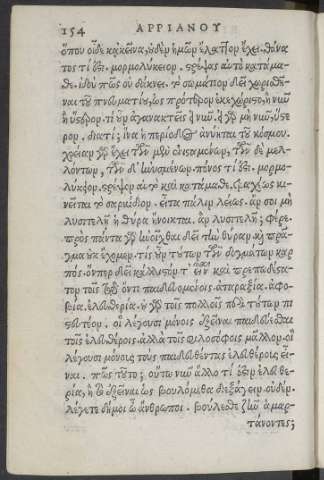 154 ΑΡΡΙΑΝΟΥ
ὅπου οἶδε κἀκεῖνα, οὐδὲν ἡμῶν ἔλαττον ἔχει. θάνα
τος τί ἐστι. μορμολύκειον. στρέψας αὐτὸ κατάμα-
θε. ἰδοὺ πῶς οὐ δάκνει. τὸ σωμάτιον δεῖ χωρισθῆ-
ναι τοῦ πνευματίου, ὡς πρότερον ἐκεχώριστο, ἢ νῦν
ἢ ὕστερον. τί οὖν ἀγανακτεῖς εἰ νῦν. εἰ γὰρ μὴ νῦν, ὕστε
ρον. διατί; ἵνα ἡ περίοδος ἀνύηται τοῦ κόσμου.
χρείαν γὰρ ἔχει τῶν μὲν ἐνισταμένων, τῶν δὲ μελ-
λόντων, τῶν δ' ἠνυσμένων. πόνος τί ἐστι. μορμο-
λύκειον. στρέψον αὐτὸ καὶ κατάμαθε. τραχέως κι-
νεῖται τὸ σαρκίδιον. εἶτα πάλιν λείως. ἄν σοι μὴ
λυσιτελῇ ἡ θύρα ἤνοικται. ἂν λυσιτελῇ; φέρε.
πρὸς πάντα γὰρ ἠνοῖχθαι δεῖ τὴν θύραν, καὶ πρᾶγ-
μα οὐκ ἔχομεν. τίς οὖν τούτων τῶν δογμάτων καρ
πός. ὅνπερ δεῖ κάλλιστόν τ' εἶναι καὶ πρεπωδέσα-
τον τοῖς τῷ ὄντι παιδευομένοις. ἀταραξία. ἀφο-
βία. ἐλευθερία. οὐ γὰρ τοῖς πολλοῖς περὶ τούτων πι
στευτέον. οἳ λέγουσι μόνοις ἐξεῖναι παιδεύεσθαι
τοῖς ἐλευθέροις. ἀλλὰ τοῖς φιλοσόφοις μᾶλλον. οἳ
λέγουσι μόνους τοὺς παιδευθέντας ἐλευθέρους εἶ-
ναι. πῶς τοῦτο; οὕτω νῦν ἄλλο τί ἐστιν ἐλευθε-
ρία, ἢ τὸ ἐξεῖναι ὡς βουλόμεθα διεξάγειν. οὐδέν.
λέγετε δή μοι ὦ ἄνθρωποι. βούλεσθε ζῆν ἁμαρ-
τάνοντες;